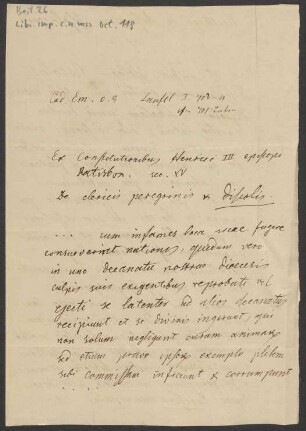 Beil. 26
Libr. imp. c. n. mss. Oct. 119
Cod. Em. 0. 9
Ex Constitutionibus Henrici III episcopi
Ratisbon. sec. XV
De clericis peregrinis & discolis.
... cum infames loca suae fugere
consueverint nationes, quidam vero
in uno decanatu nostrae diocesis
culpis suis exigentibus reprobati vel
ejecti se latenter ad alios decanatus
recipiunt et se divinis ingerunt, qui
non solum negligunt curam animarum
sed etiam potior ipsos exemplo plebem
sibi commissam inficiunt & corrumpunt